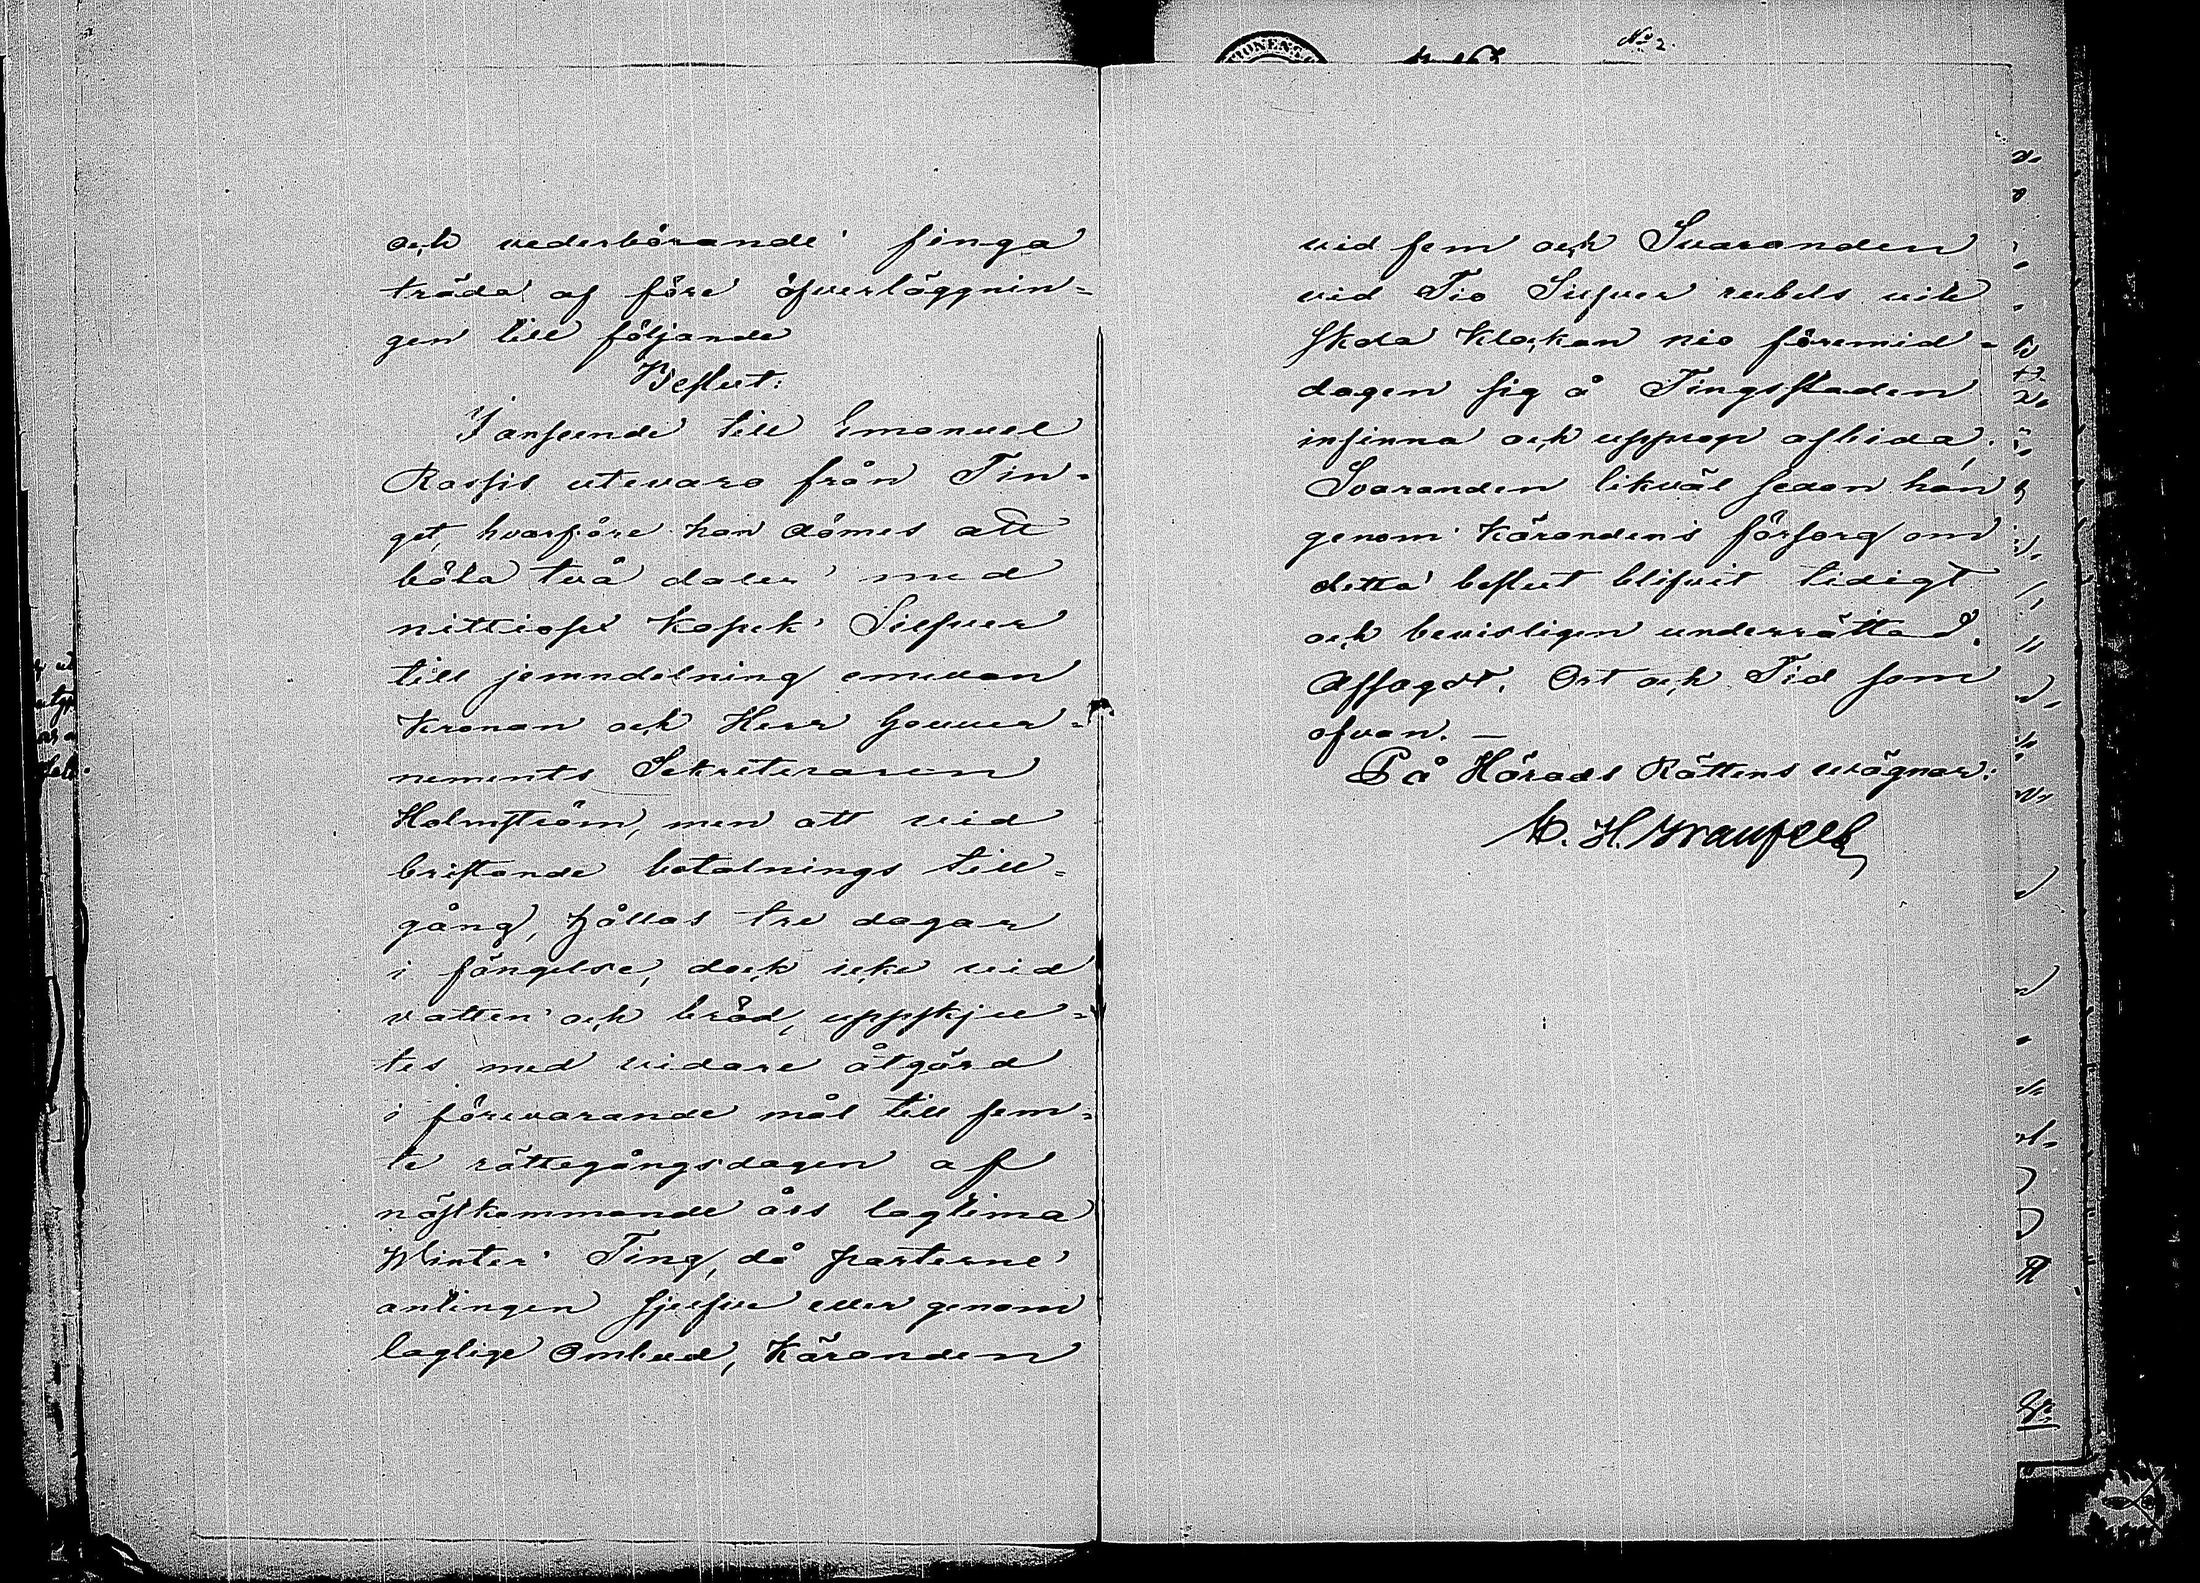 och vederbörande finga
träda af före öfverläggnin=
gen till följande
Beslut:
I anseende till Emanuel
Rassis utevaro från Tin=
get, hvarföre han dömes att
böta två daler med
nittiosex kopek Silfver
till jemndelning emellan
Kronan och Herr Gouver=
nements Sekreteraren
Holmström, men att vid
bristande betalnings till=
gång, hållas tre dagar
i fängelse, dock icke vid
vatten och bröd, uppskju=
tes med vidare åtgärd
i förevarande mål till fem=
te rättegångsdagen af
nästkommande års lagtima
Winter Ting, då parterne
antingen sjelfve eller genom
laglige Ombud, Käranden
No 2.
vid fem och Svaranden
vid Tio Silfver rubels vite
skola klockan nio föremid=
dagen sig å Tingsstaden
infinna och upprop afbida,
Svaranden likväl sedan han
genom Kärandens försorg om
detta beslut blifvit tidigt
och bevisligen underrättad.
Afsagdt, Ort och Tid som
ofvan. —
På Härads Rättens vägnar: